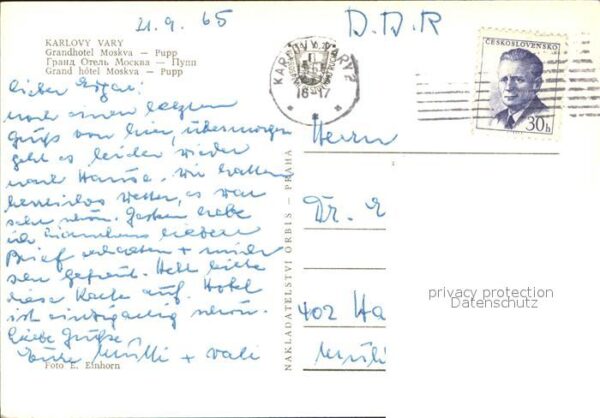 21.9.65
D.D.R
KARLOVY VARY
Grandhotel Moskva — Pupp
Гранд Отель Москва — Пупп
Grand hôtel Moskva — Pupp
KARLOVY VARY 2
18-17
ČESKOSLOVENSKO
30h
Lieber
noch einen letzten
Gruß von hier, übermorgen
geht es leider wieder
nach Hause. Wir hatten
Wetter, es war
sehr schön. Gestern habe
ich lieben
Brief erhalten + mich
sehr gefreut. Hebt bitte
diese Karte auf. Hotel
ist einzigartig schön.
Liebe Grüße
Eure Mutti + Vati
Foto E. Einhorn
NAKLADATELSTVÍ ORBIS — PRAHA
Herrn
Dr. E
402 Ha
privacy protection
Datenschutz